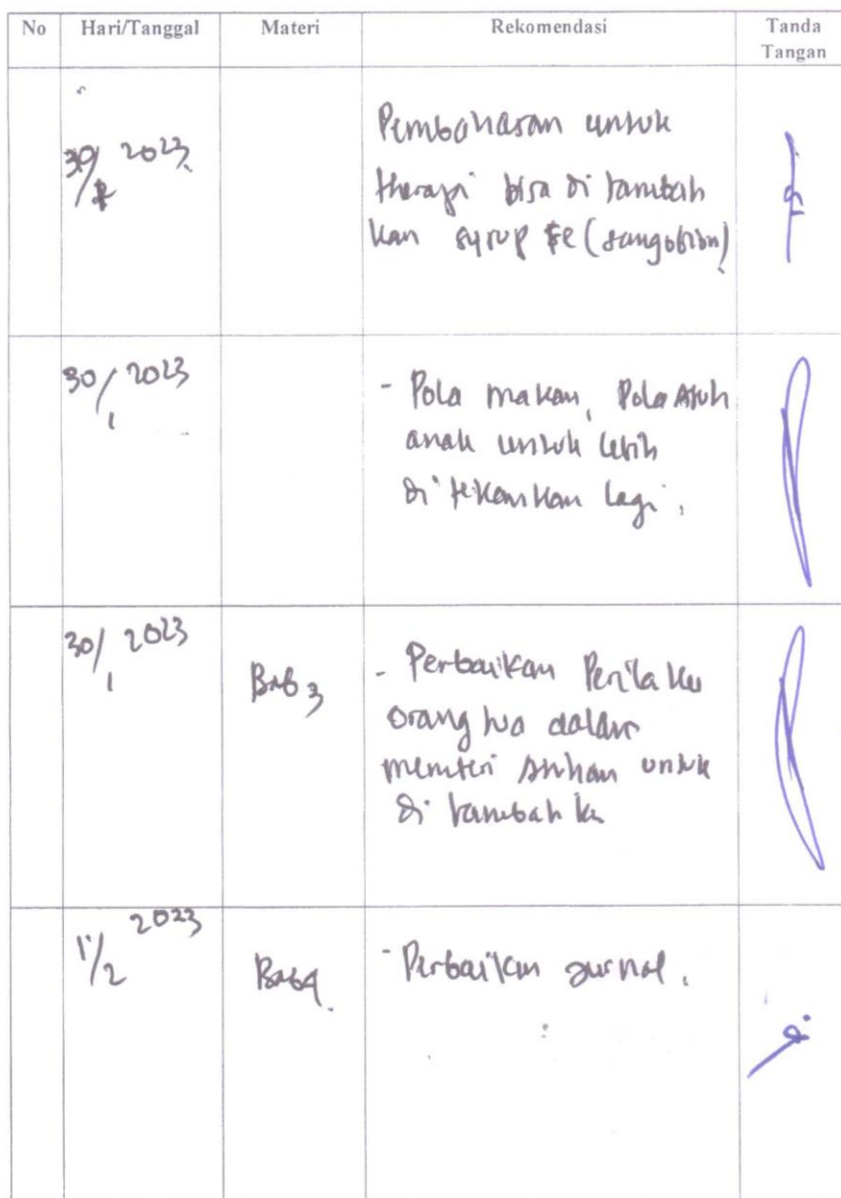 No Hari/Tanggal Materi Rekomendasi Tanda Tangan
30/ 2023
Pembahasan untuk
therapi bisa di tambah
kan syrup Fe (sangobion)
30/1 2023
- Pola makan, Pola Asuh
anak untuk lebih
di tekankan lagi.
30/1 2023
Bab 3
- Perbaikan Perilaku
orang tua dalam
memberi Asuhan untuk
di tambah kn
1/2 2023
Bab 4.
- Perbaikan Jurnal.